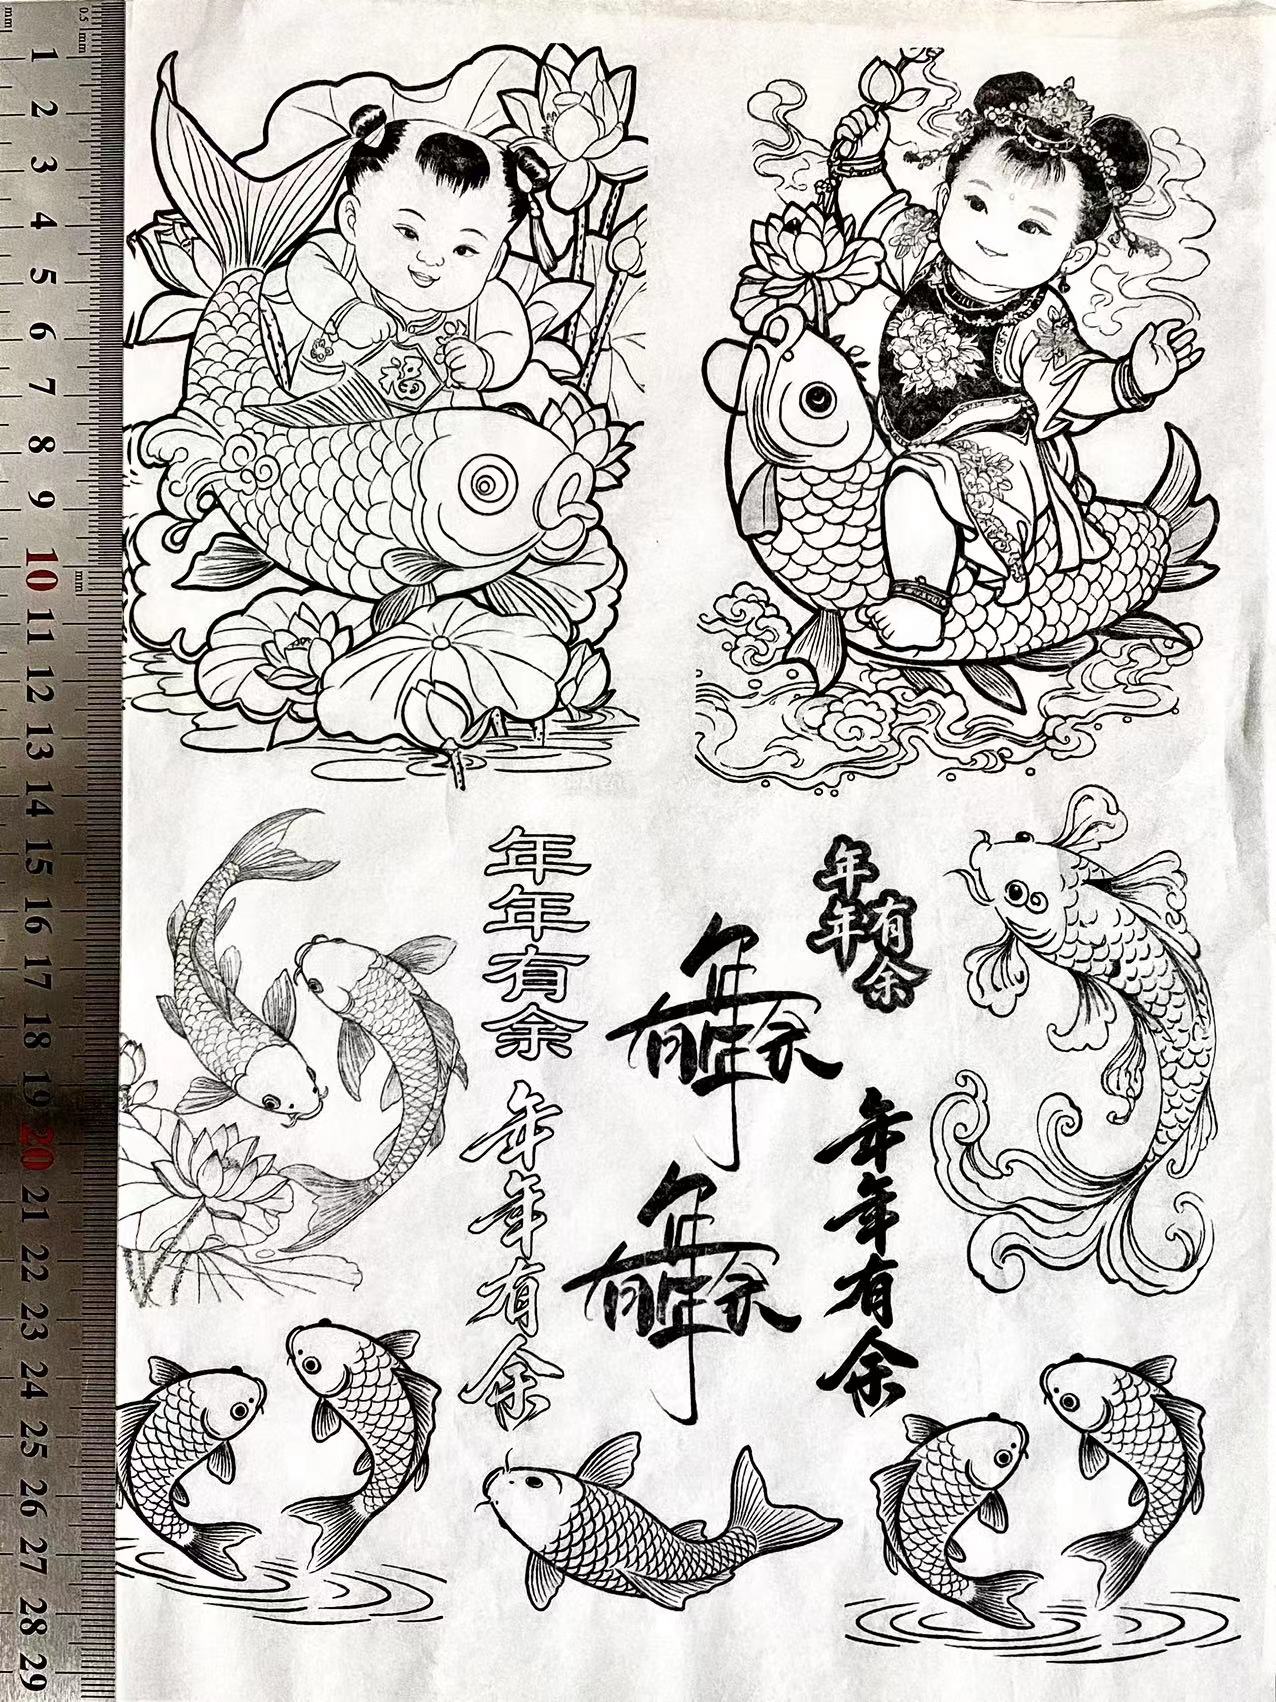 0.5 1mm
mm
1
2
3
4
5
6
7
8
9
10
mm
11
12
13
14
15
16
17
18
19
20
21
22
23
24
25
26
27
28
29
福
年年有余
年年有余
年年有余
年年有余
年年
有余
年年有余